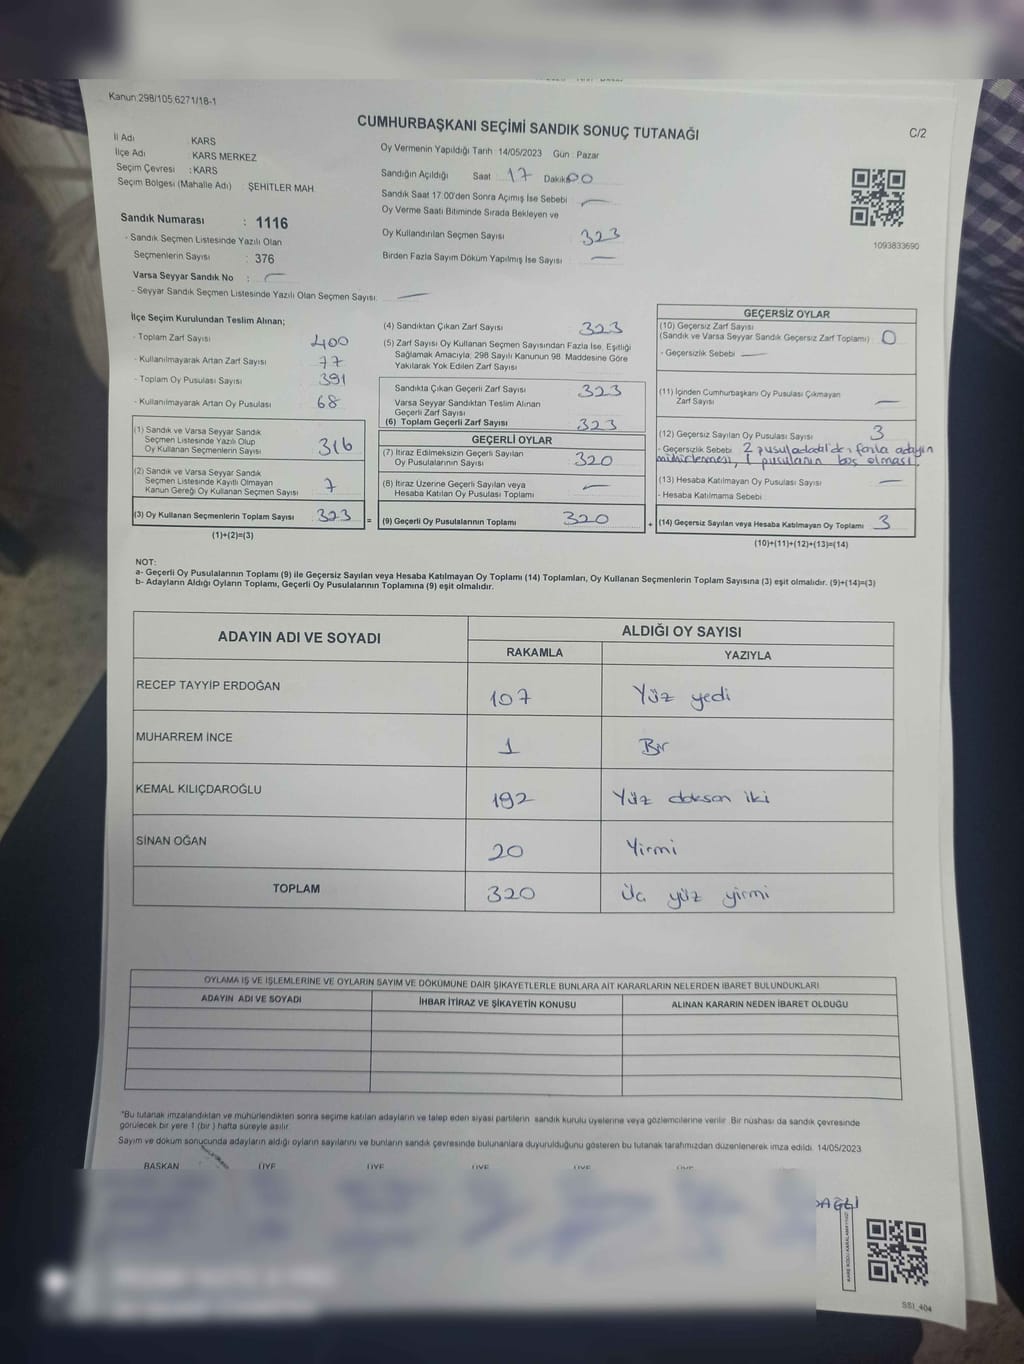 Kanun:298/105.6271/18-1
CUMHURBAŞKANI SEÇİMİ SANDIK SONUÇ TUTANAĞI
C/2
İl Adı : KARS
İlçe Adı : KARS MERKEZ
Seçim Çevresi : KARS
Seçim Bölgesi (Mahalle Adı) : ŞEHİTLER MAH
Sandık Numarası : 1116
- Sandık Seçmen Listesinde Yazılı Olan
Seçmenlerin Sayısı : 376
Varsa Seyyar Sandık No : —
- Seyyar Sandık Seçmen Listesinde Yazılı Olan Seçmen Sayısı: —
Oy Vermenin Yapıldığı Tarih 14/05/2023 Gün : Pazar
Sandığın Açıldığı Saat 17 Dakika 00
Sandık Saat 17.00'den Sonra Açımış İse Sebebi —
Oy Verme Saati Bitiminde Sırada Bekleyen ve
Oy Kullandırılan Seçmen Sayısı 323
Birden Fazla Sayım Döküm Yapılmış İse Sayısı —
1093833690
İlçe Seçim Kurulundan Teslim Alınan;
- Toplam Zarf Sayısı 400
- Kullanılmayarak Artan Zarf Sayısı 77
- Toplam Oy Pusulası Sayısı 391
- Kullanılmayarak Artan Oy Pusulası 68
(1) Sandık ve Varsa Seyyar Sandık
Seçmen Listesinde Yazılı Olup
Oy Kullanan Seçmenlerin Sayısı 316
(2) Sandık ve Varsa Seyyar Sandık
Seçmen Listesinde Kayıtlı Olmayan
Kanun Gereği Oy Kullanan Seçmen Sayısı 7
(3) Oy Kullanan Seçmenlerin Toplam Sayısı 323 =
(1)+(2)=(3)
(4) Sandıktan Çıkan Zarf Sayısı 323
(5) Zarf Sayısı Oy Kullanan Seçmen Sayısından Fazla İse, Eşitliği
Sağlamak Amacıyla, 298 Sayılı Kanunun 98. Maddesine Göre
Yakılarak Yok Edilen Zarf Sayısı
Sandıkta Çıkan Geçerli Zarf Sayısı 323
Varsa Seyyar Sandıktan Teslim Alınan
Geçerli Zarf Sayısı
(6) Toplam Geçerli Zarf Sayısı 323
GEÇERLİ OYLAR
(7) İtiraz Edilmeksizin Geçerli Sayılan
Oy Pusulalarının Sayısı 320
(8) İtiraz Üzerine Geçerli Sayılan veya
Hesaba Katılan Oy Pusulası Toplamı —
(9) Geçerli Oy Pusulalarının Toplamı 320 +
GEÇERSİZ OYLAR
(10) Geçersiz Zarf Sayısı
(Sandık ve Varsa Seyyar Sandık Geçersiz Zarf Toplamı) 0
- Geçersizlik Sebebi —
(11) İçinden Cumhurbaşkanı Oy Pusulası Çıkmayan
Zarf Sayısı —
(12) Geçersiz Sayılan Oy Pusulası Sayısı 3
- Geçersizlik Sebebi 2 pusula fazla adayın
mühürlenmesi, 1 pusulanın boş olması.
(13) Hesaba Katılmayan Oy Pusulası Sayısı —
- Hesaba Katılmama Sebebi
(14) Geçersiz Sayılan veya Hesaba Katılmayan Oy Toplamı 3
(10)+(11)+(12)+(13)=(14)
NOT:
a- Geçerli Oy Pusulalarının Toplamı (9) ile Geçersiz Sayılan veya Hesaba Katılmayan Oy Toplamı (14) Toplamları, Oy Kullanan Seçmenlerin Toplam Sayısına (3) eşit olmalıdır. (9)+(14)=(3)
b- Adayların Aldığı Oyların Toplamı, Geçerli Oy Pusulalarının Toplamına (9) eşit olmalıdır.
ADAYIN ADI VE SOYADI ALDIĞI OY SAYISI
RAKAMLA YAZIYLA
RECEP TAYYİP ERDOĞAN 107 Yüz yedi
MUHARREM İNCE 1 Bir
KEMAL KILIÇDAROĞLU 192 Yüz doksan iki
SİNAN OĞAN 20 Yirmi
TOPLAM 320 Üç yüz yirmi
OYLAMA İŞ VE İŞLEMLERİNE VE OYLARIN SAYIM VE DÖKÜMÜNE DAİR ŞİKAYETLERLE BUNLARA AİT KARARLARIN NELERDEN İBARET BULUNDUKLARI
ADAYIN ADI VE SOYADI İHBAR İTİRAZ VE ŞİKAYETİN KONUSU ALINAN KARARIN NEDEN İBARET OLDUĞU
"Bu tutanak imzalandıktan ve mühürlendikten sonra seçime katılan adayların ve talep eden siyasi partilerin sandık kurulu üyelerine veya gözlemcilerine verilir. Bir nüshası da sandık çevresinde
görülecek bir yere 1 (bir) hafta süreyle asılır.
Sayım ve döküm sonucunda adayların aldığı oyların sayılarını ve bunların sandık çevresinde bulunanlara duyurulduğunu gösteren bu tutanak tarafımızdan düzenlenerek imza edildi. 14/05/2023
BAŞKAN ÜYE ÜYE ÜYE ÜYE ÜYE
SS1_404